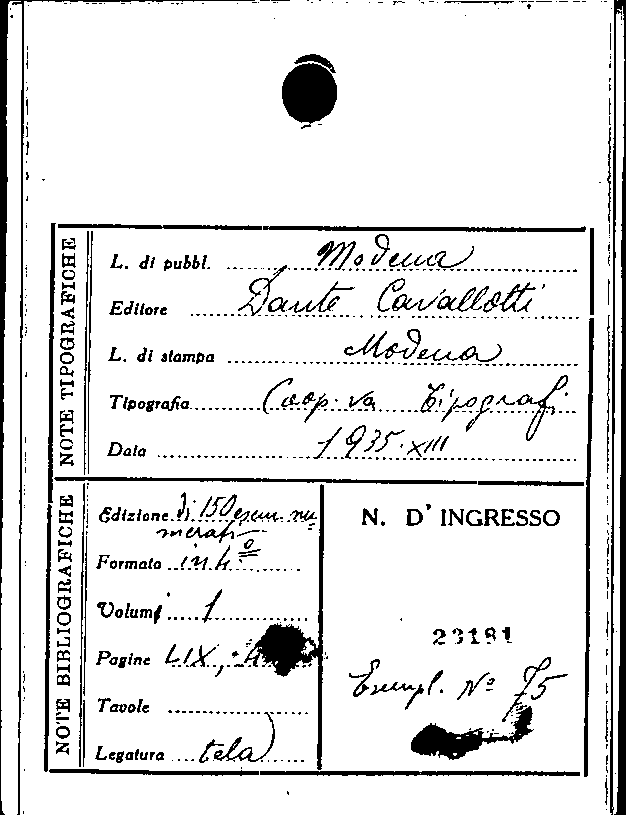 NOTE TIPOGRAFICHE
L. di pubbl. Modena
Editore Dante Cavallotti
L. di stampa Modena
Tipografia Coop.va Tipografi
Data 1935.XIII
NOTE BIBLIOGRAFICHE
Edizione di 150 esem. nu=
merati
Formato in 4.º
Volumi 1
Pagine LIX,
Tavole
Legatura tela
N. D' INGRESSO
23181
Esempl. Nº 75